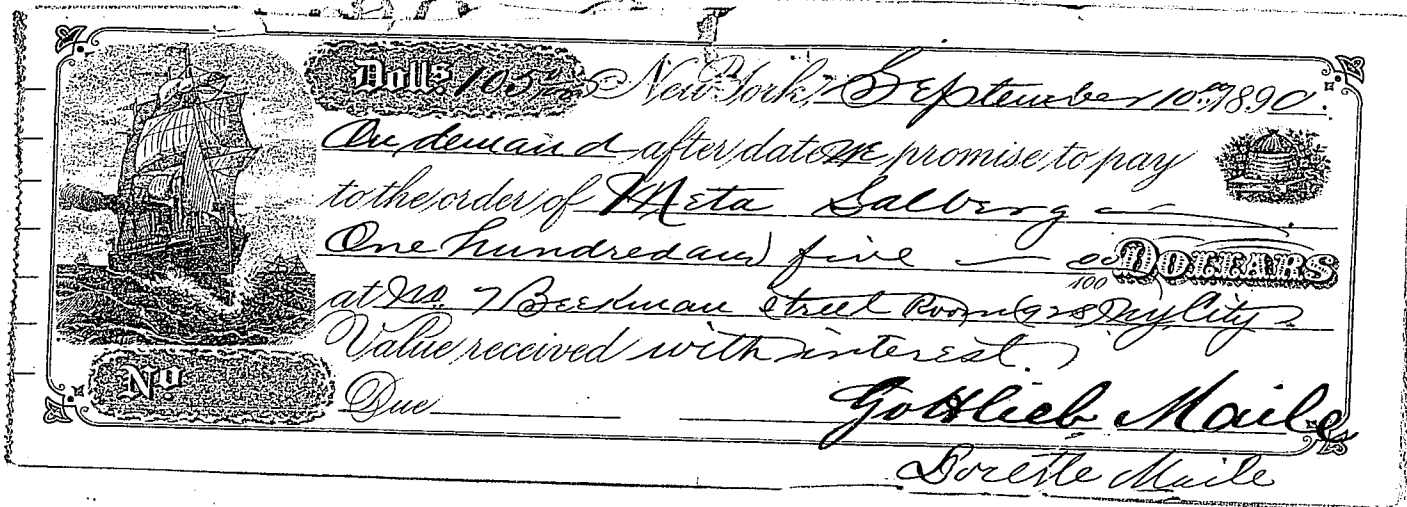 Dolls. 105 00/100 New York, September 10th 1890.
On demand after date we promise to pay
to the order of Meta Salberg
One hundred and five 00/100 DOLLARS
at No. 7 Beekman Street Room NyCity
Value received with interest.
No Due Gottlieb Maile
Dorette Maile